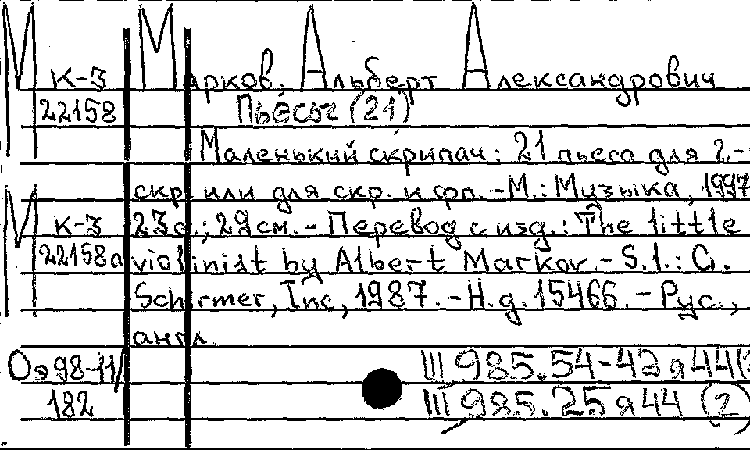 М К-3 Марков, Альберт Александрович
22158 Пьесы (21)
Маленький скрипач: 21 пьеса для 2-
скр. или для скр. и фп. -М.: Музыка, 1997
М К-3 23с.; 29см. - Перевод с изд.: The little
22158а violinist by Albert Markov. - S.l.: G.
Schirmer, Inc, 1987. - Н.д. 15466. - Рус.,
англ.
Оэ98-11/ III 985.54-42я44(
182 III 985.25я44 (2)